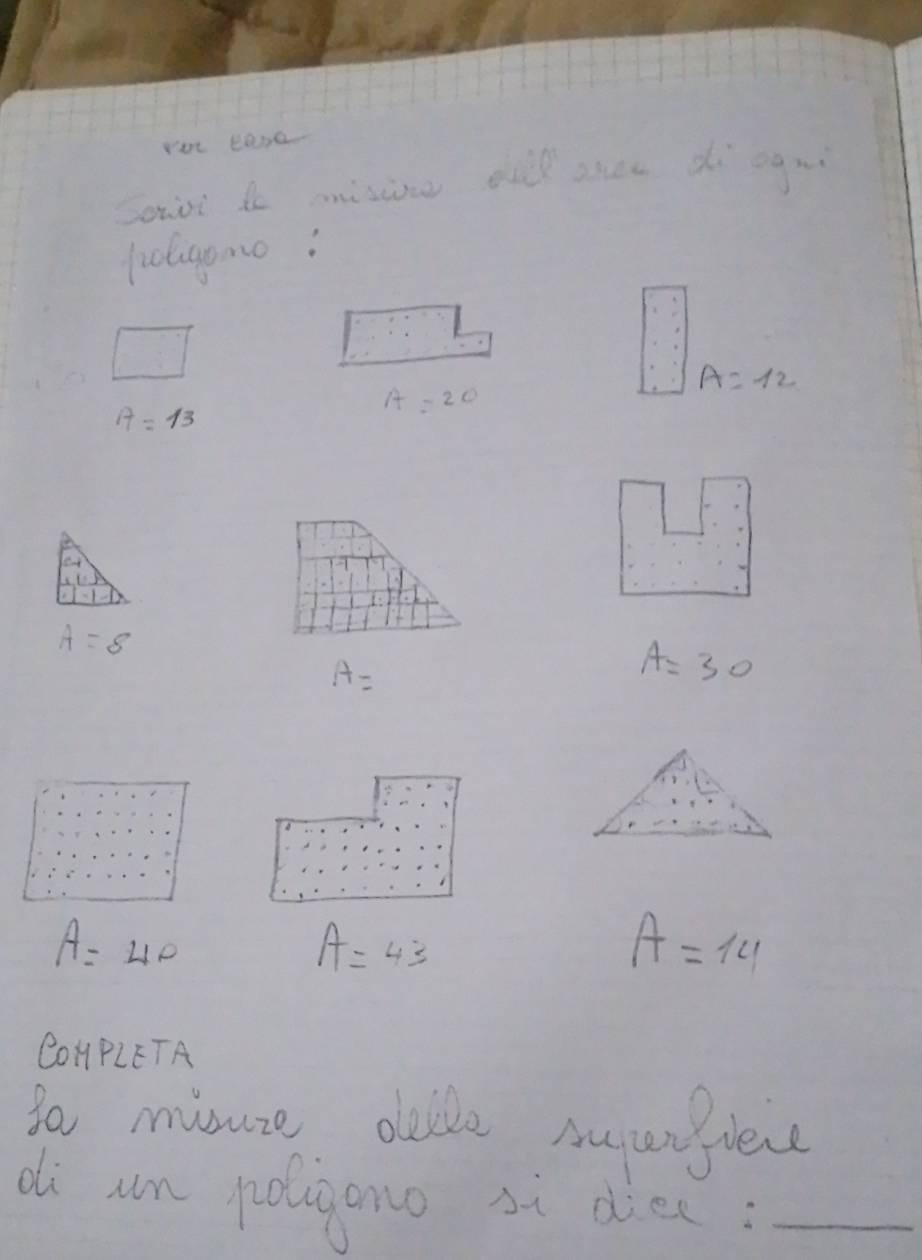 Per casa
Scrivi la misura dell'area di ogni
poligono :
A = 13
A = 20
A = 12
A = 8
A =
A = 30
A = 40
A = 43
A = 14
COMPLETA
La misura della superficie
di un poligono si dice : ______